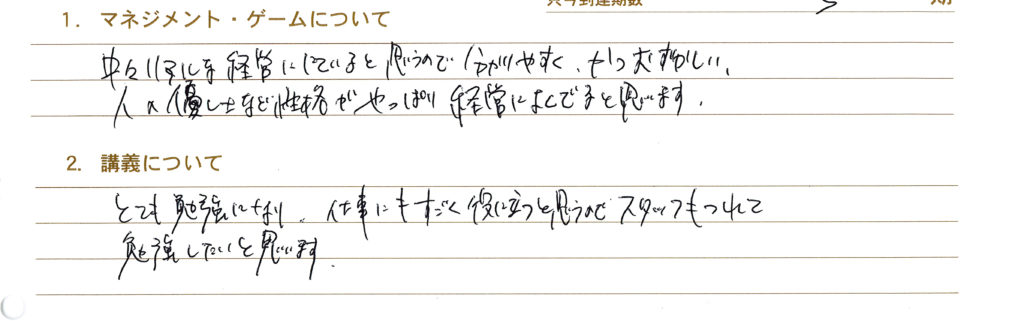 只今到達期数 5 期
1. マネジメント・ゲームについて
中々リアルな経営ににていると思うので分かりやすく、かつむずかしい、
人の優しさなど性格がやっぱり経営によくでると思います。
2. 講義について
とても勉強になり、仕事にもすごく役に立つと思うのでスタッフもつれて
勉強したいと思います。